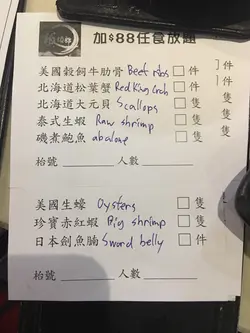 加$88任食放題
美國穀飼牛肋骨 Beef ribs □件 1件
北海道松葉蟹 Red King Crab □件 1件
北海道大元貝 Scallops □隻 隻
泰式生蝦 Raw shrimp □隻 隻
磯煮鮑魚 abalone □隻 隻
枱號 人數
美國生蠔 Oysters □隻
珍寶赤紅蝦 Big shrimp □隻
日本劍魚腩 Sword belly □件
枱號 人數